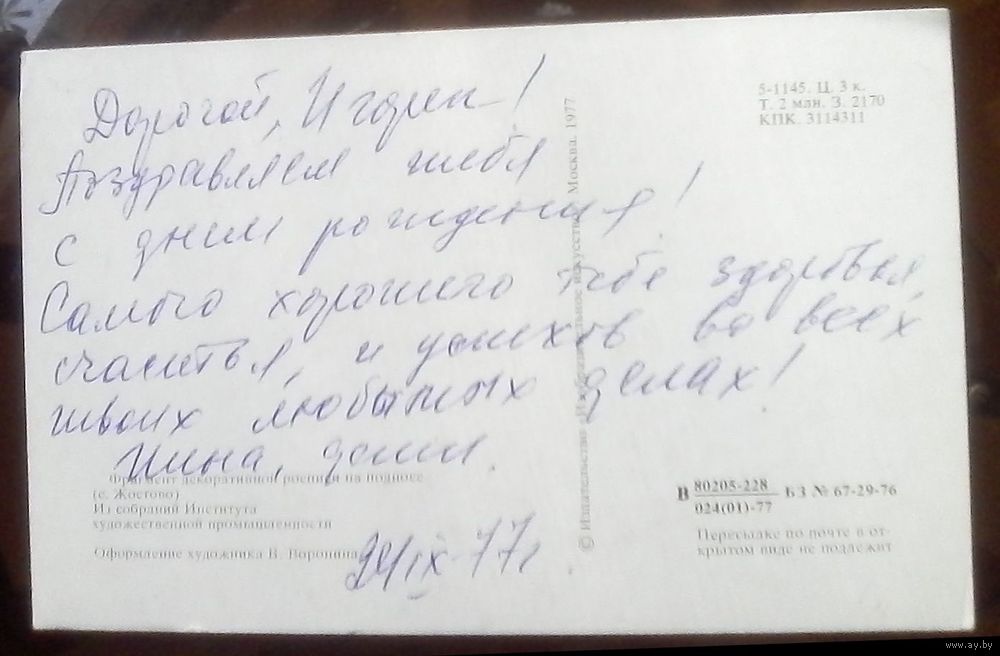 Дорогой, Игорек!
Поздравляем тебя
с днем рождения!
Самого хорошего тебе здоровья,
счастья, и успехов во всех
твоих любимых делах!
Нина, дети.
24/IX-77г
Фрагмент декоративной росписи на подносе
(с. Жостово)
Из собраний Института
художественной промышленности
Оформление художника В. Воронина
© Издательство «Изобразительное искусство». Москва. 1977
5-1145. Ц. 3 к.
Т. 2 млн. З. 2170
КПК. 3114311
В 80205-228
024(01)-77
БЗ № 67-29-76
Пересылке по почте в от-
крытом виде не подлежит
www.ay.by